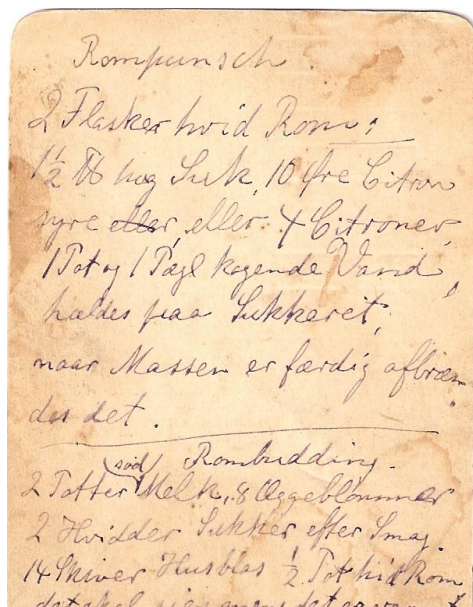 Rompunsch
2 Flasker hvid Rom;
1 1/2 ℔ hug Suk, 10 Øre Citron
syre eller, eller 4 Citroner,
1 Pot og 1 Pægl kogende Vand,
hældes paa Sukkeret;
naar Massen er færdig afbræn-
des det.
Rombudding.
2 Potter (sød) Melk, 8 Æggeblommer
2 Hvidder Sukker efter Smag
14 Skiver Husblas 1/2 Pot hvid Rom
det skal